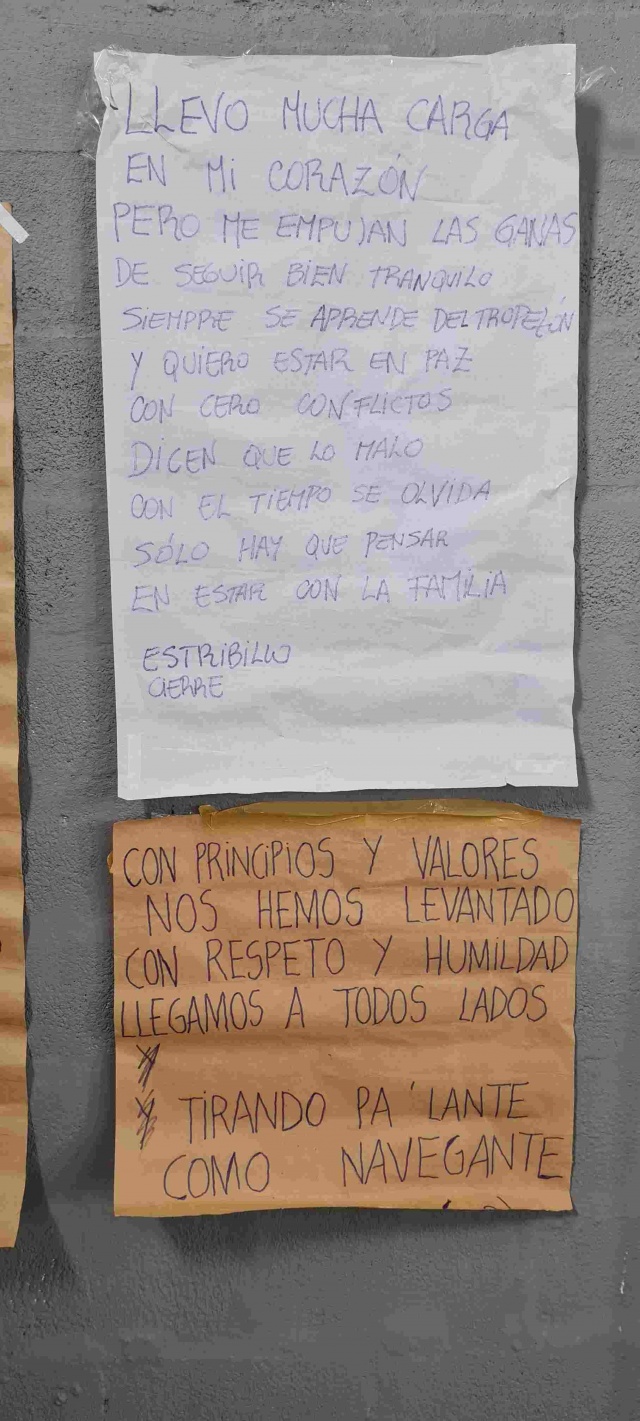 LLEVO MUCHA CARGA
EN Mi CORAZÓN
PERO ME EMPUJAN LAS GANAS
DE SEGUIR BIEN TRANQUILO
SiEMPRE SE APRENDE DEL TROPEZÓN
Y QUIERO ESTAR EN PAZ
CON CERO CONFLICTOS
DICEN QUE LO MALO
CON EL TIEMPO SE OLVIDA
SÓLO HAY QUE PENSAR
EN ESTAR CON LA FAMiLiA
ESTRIBILLO
CIERRE
CON PRiNCiPiOS Y VALORES
NOS HEMOS LEVANTADO
CON RESPETO Y HUMiLDAD
LLEGAMOS A TODOS LADOS
TiRANDO PA 'LANTE
COMO NAVEGANTE